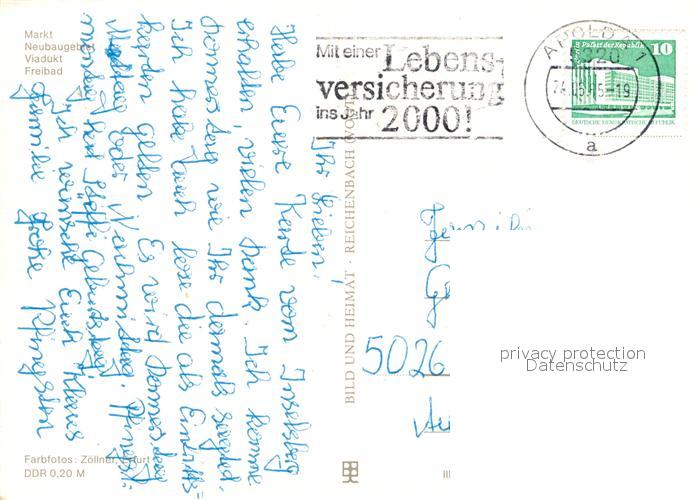 Markt
Neubaugebiet
Viadukt
Freibad
Ihr Lieben!
Habe Eure Karte vom Inselsberg
erhalten, vielen Dank. Ich komme
Donnerstag wie Ihr damals sagtet.
Ich habe auch lose die als Eintritts
karten gelten. Es wird Donnerstag
oder Nachmittag. Pfingst
montag hat Steffi Geburtstag
Ich wünsche Euch Klaus
Familie frohe Pfingsten
Farbfotos: Zöllner, Erfurt
DDR 0,20 M
BILD UND HEIMAT REICHENBACH (VOGTL)
III
Mit einer Lebens-
versicherung
ins Jahr 2000!
APOLDA 1
5320
-19
a
Palast der Republik
10
DEUTSCHE DEMOKRATISCHE REPUBLIK
Familie
5026
privacy protection
Datenschutz